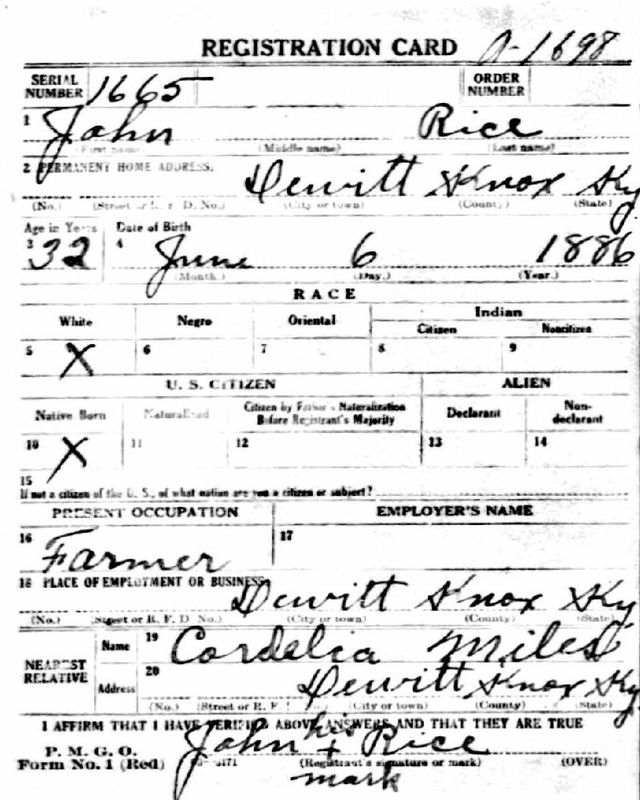 REGISTRATION CARD A-1698
SERIAL NUMBER 1665 ORDER NUMBER
1 John Rice
(First name) (Middle name) (Last name)
2 PERMANENT HOME ADDRESS: Dewitt Knox Ky
(No.) (Street or R. F. D. No.) (City or town) (County) (State)
Age in Years Date of Birth
3 32 4 June 6 1886
(Month.) (Day.) (Year.)
RACE
White Negro Oriental Indian
Citizen Noncitizen
5 X 6 7 8 9
U. S. CITIZEN ALIEN
Native Born Naturalized Citizen by Father's Naturalization Before Registrant's Majority Declarant Non-declarant
10 X 11 12 13 14
15
If not a citizen of the U. S., of what nation are you a citizen or subject?
PRESENT OCCUPATION EMPLOYER'S NAME
16 Farmer 17
18 PLACE OF EMPLOYMENT OR BUSINESS: Dewitt Knox Ky
(No.) (Street or R. F. D. No.) (City or town) (County) (State)
NEAREST RELATIVE Name 19 Cordelia Miles
Address 20 Dewitt Knox Ky
(No.) (Street or R. F. (City or town) (County) (State)
I AFFIRM THAT I HAVE VERIFIED ABOVE ANSWERS AND THAT THEY ARE TRUE
P. M. G. O. John his + Rice
Form No. 1 (Red) (Registrant's signature or mark) (OVER)
mark